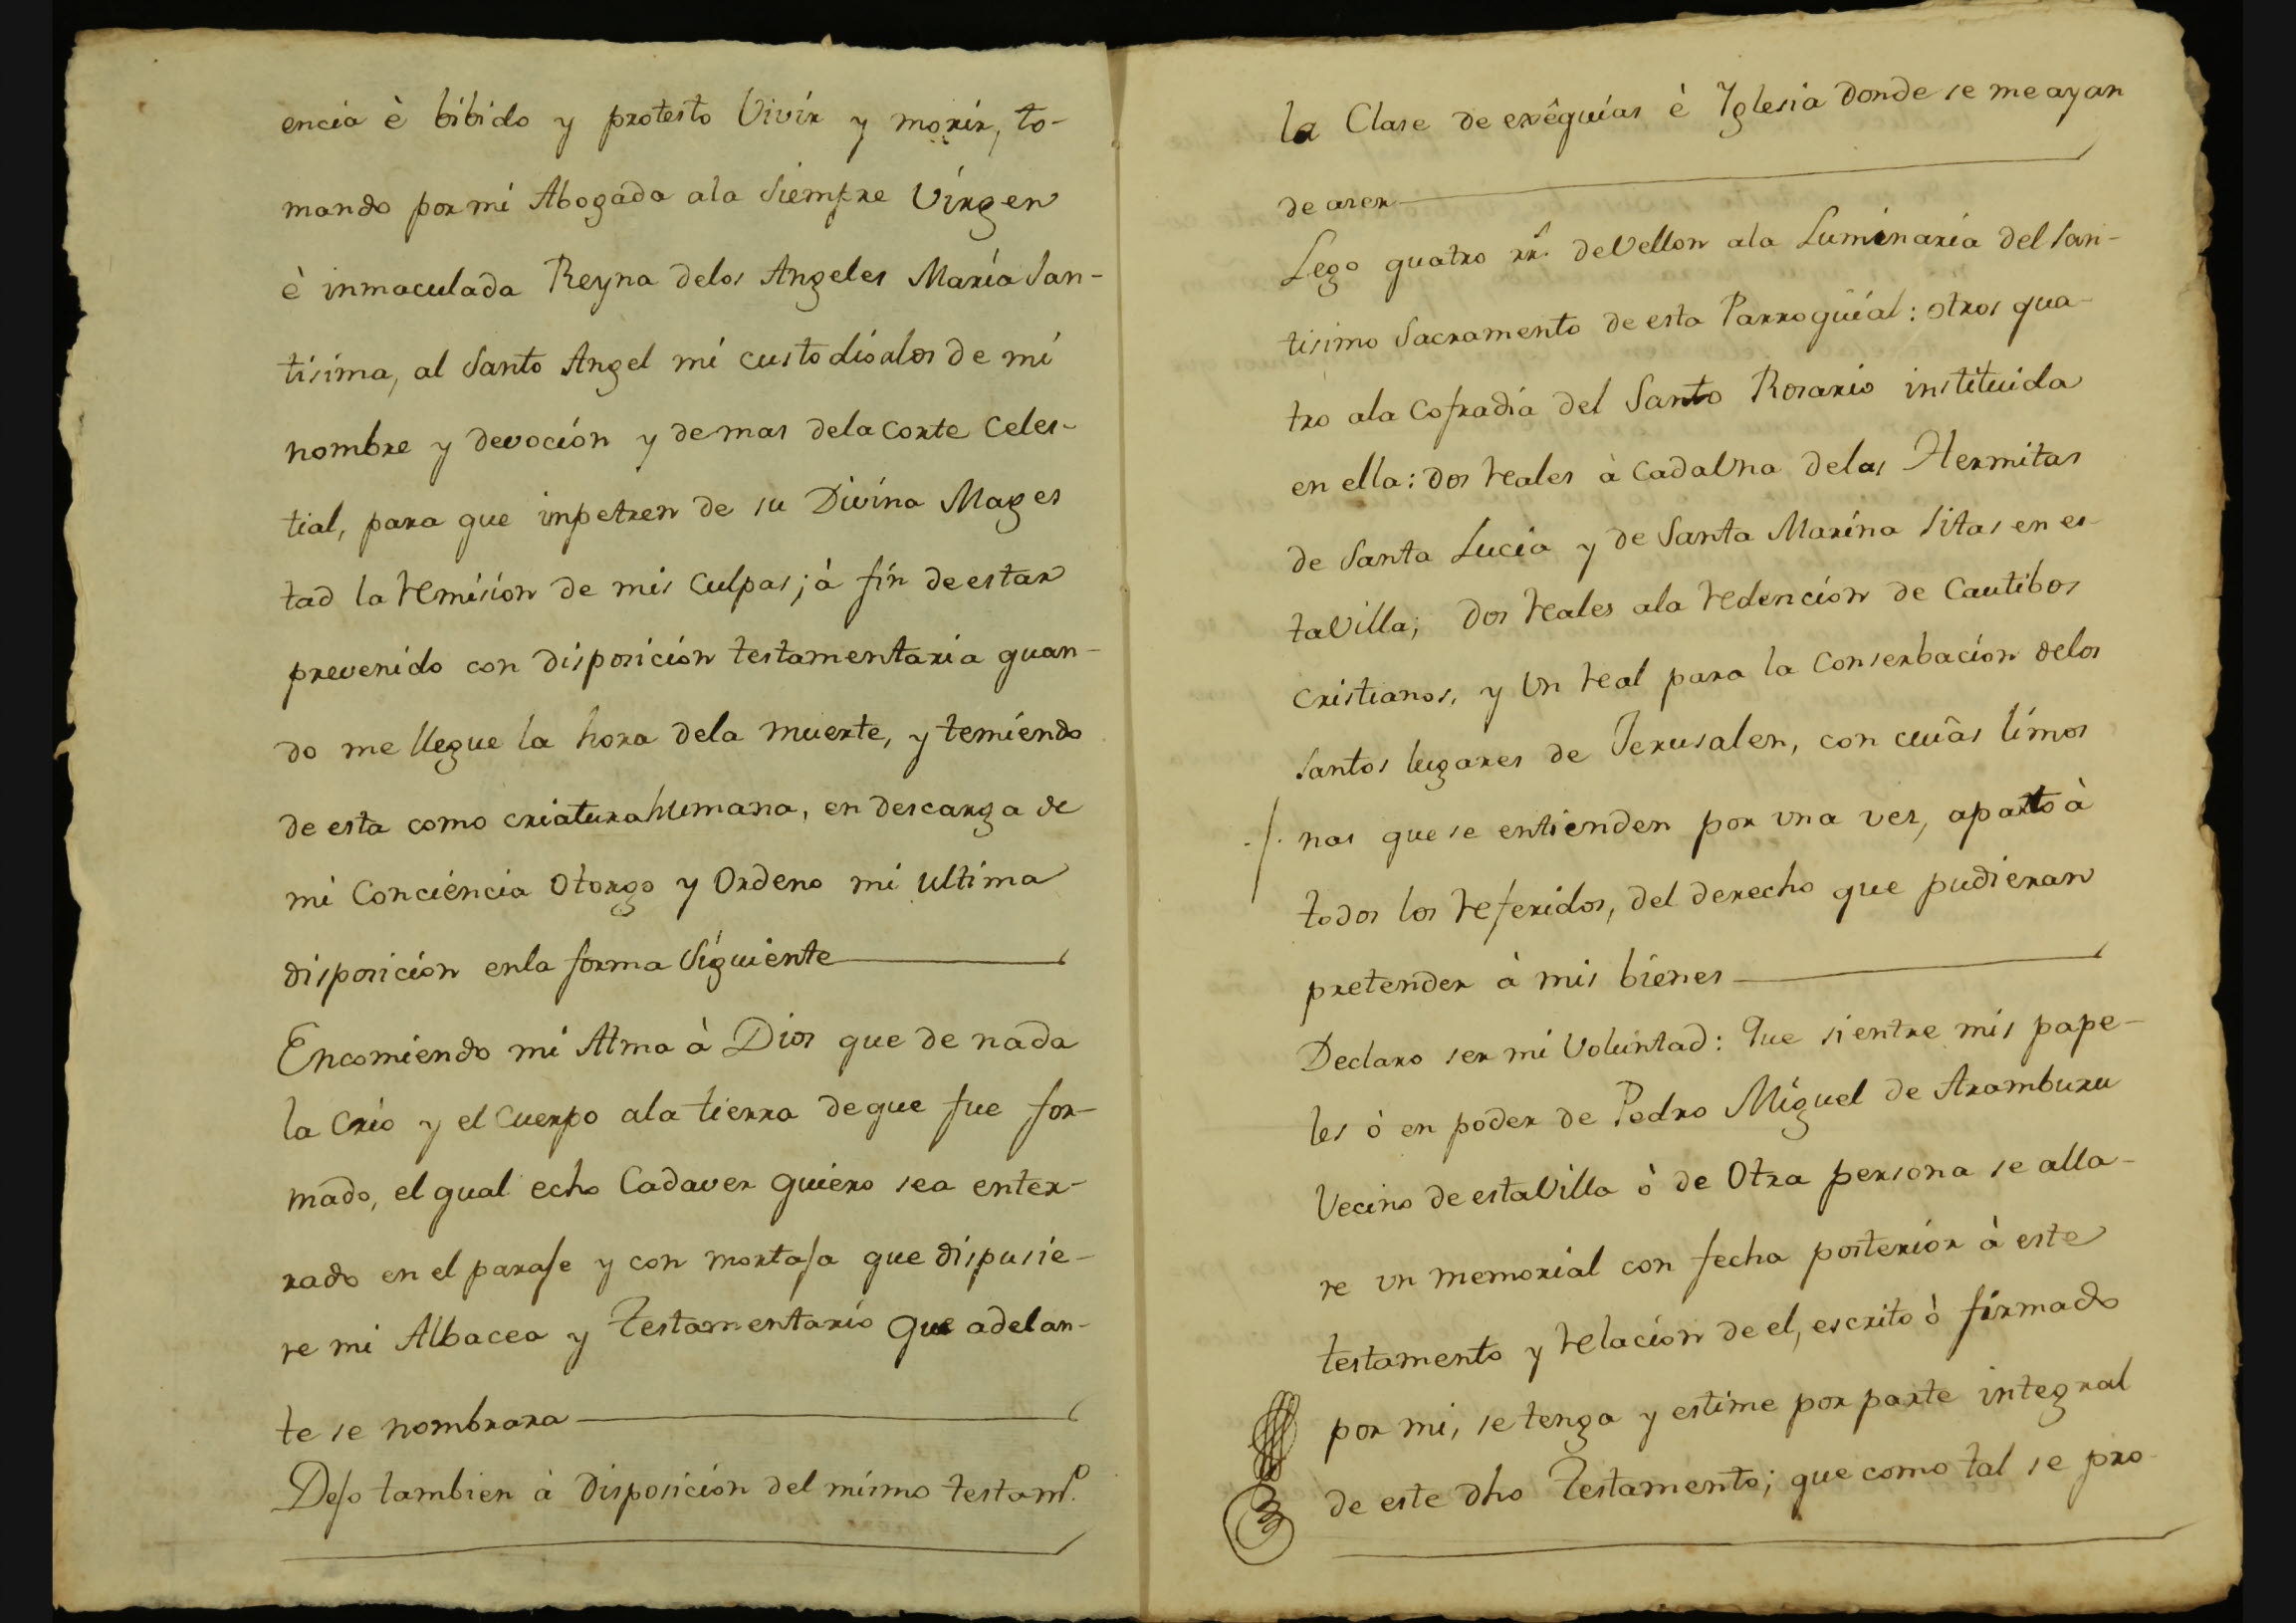 encia è bibido y protesto Vivir y morir, to-
mando por mi Abogada ala Siempre Virgen
è inmaculada Reyna delos Angeles María San-
tisima, al Santo Angel mi custodio alos de mi
nombre y devoción y demas dela Corte Celes-
tial, para que impetren de su Divina Mages
tad la remisión de mis Culpas; à fin de estar
prevenido con disposición testamentaria quan-
do me llegue la hora dela muerte, y temiendo
de esta como criatura humana, en descarga de
mi Conciencia Otorgo y Ordeno mi ultima
disposición enla forma Siguiente
Encomiendo mi Alma à Dios que de nada
la Crio y el Cuerpo ala tierra de que fue for-
mado, el qual echo Cadaver quiero sea enter-
rado en el paraje y con mortaja que dispusie-
re mi Albacea y Testamentario que adelan-
te se nombrara
Dejo tambien à disposición del mismo testamto.
la Clase de exêquias è Iglesia donde se me ayan
de aser
Lego quatro rrs. de Vellon ala Luminaria del San-
tisimo Sacramento de esta Parroquial: otros qua-
tro ala Cofradia del Santo Rosario instituida
en ella: dos reales à cada Una delas Hermitas
de Santa Lucia y de Santa Marina sitas en es-
ta Villa; dos reales ala redención de Cautibos
cristianos, y Un real para la Conserbación delos
Santos lugares de Jerusalen, con cuias limos
nas que se entienden por una ves, aparto à
todos los referidos, del derecho que pudieran
pretender à mis bienes
Declaro ser mi Voluntad: Que si entre mis pape-
les ò en poder de Pedro Miguel de Aramburu
Vecino de esta Villa ò de Otra persona se alla-
re un memorial con fecha posterior à este
testamento y relación de el, escrito ò firmado
por mi, se tenga y estime por parte integral
de este dho Testamento; que como tal se pro